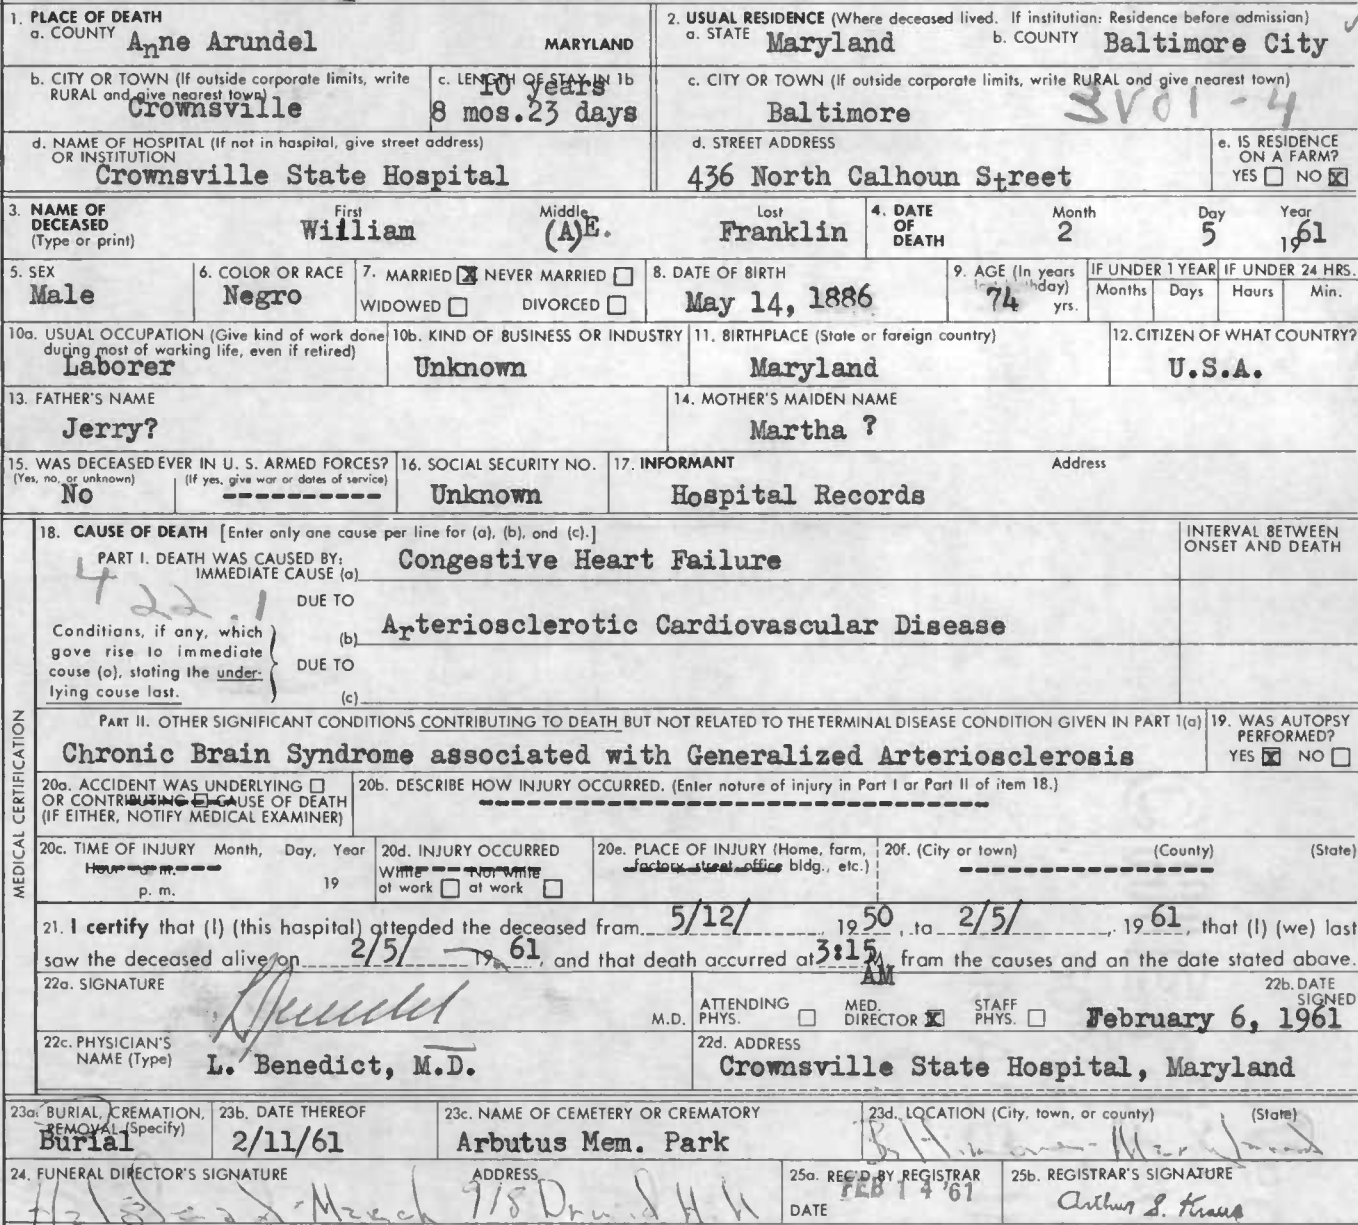 1. PLACE OF DEATH
a. COUNTY Anne Arundel MARYLAND
2. USUAL RESIDENCE (Where deceased lived. If institution: Residence before admission)
a. STATE Maryland b. COUNTY Baltimore City
b. CITY OR TOWN (If outside corporate limits, write RURAL and give nearest town)
Crownsville
c. LENGTH OF STAY IN 1b
10 years
8 mos.23 days
c. CITY OR TOWN (If outside corporate limits, write RURAL and give nearest town)
Baltimore
3V01-4
d. NAME OF HOSPITAL (If not in hospital, give street address)
OR INSTITUTION
Crownsville State Hospital
d. STREET ADDRESS
436 North Calhoun Street
e. IS RESIDENCE ON A FARM?
YES ☐ NO ☒
3. NAME OF DECEASED
(Type or print)
First Middle Last
William (A)E. Franklin
4. DATE OF DEATH
Month Day Year
2 5 1961
5. SEX
Male
6. COLOR OR RACE
Negro
7. MARRIED ☒ NEVER MARRIED ☐
WIDOWED ☐ DIVORCED ☐
8. DATE OF BIRTH
May 14, 1886
9. AGE (In years last birthday)
74 yrs.
IF UNDER 1 YEAR
Months Days
IF UNDER 24 HRS.
Hours Min.
10a. USUAL OCCUPATION (Give kind of work done during most of working life, even if retired)
Laborer
10b. KIND OF BUSINESS OR INDUSTRY
Unknown
11. BIRTHPLACE (State or foreign country)
Maryland
12. CITIZEN OF WHAT COUNTRY?
U.S.A.
13. FATHER'S NAME
Jerry?
14. MOTHER'S MAIDEN NAME
Martha ?
15. WAS DECEASED EVER IN U. S. ARMED FORCES?
(Yes, no, or unknown) (If yes, give war or dates of service)
No ----------
16. SOCIAL SECURITY NO.
Unknown
17. INFORMANT Address
Hospital Records
MEDICAL CERTIFICATION
18. CAUSE OF DEATH [Enter only one cause per line for (a), (b), and (c).]
INTERVAL BETWEEN ONSET AND DEATH
PART I. DEATH WAS CAUSED BY:
IMMEDIATE CAUSE (a) Congestive Heart Failure
422.1
DUE TO
(b) Arteriosclerotic Cardiovascular Disease
DUE TO
(c)
Conditions, if any, which
gave rise to immediate
cause (a), stating the under-
lying cause last.
PART II. OTHER SIGNIFICANT CONDITIONS CONTRIBUTING TO DEATH BUT NOT RELATED TO THE TERMINAL DISEASE CONDITION GIVEN IN PART 1(a)
Chronic Brain Syndrome associated with Generalized Arteriosclerosis
19. WAS AUTOPSY PERFORMED?
YES ☒ NO ☐
20a. ACCIDENT WAS UNDERLYING ☐
OR CONTRIBUTING ☐ CAUSE OF DEATH
(IF EITHER, NOTIFY MEDICAL EXAMINER)
20b. DESCRIBE HOW INJURY OCCURRED. (Enter nature of injury in Part I or Part II of item 18.)
20c. TIME OF INJURY Month, Day, Year
Hour a. m.
p. m. 19
20d. INJURY OCCURRED
While at work ☐ Not while at work ☐
20e. PLACE OF INJURY (Home, farm, factory, street, office bldg., etc.)
20f. (City or town) (County) (State)
21. I certify that (I) (this hospital) attended the deceased from 5/12/ 1950, to 2/5/ 1961, that (I) (we) last
saw the deceased alive on 2/5/ 1961, and that death occurred at 3:15 AM, from the causes and on the date stated above.
22a. SIGNATURE
M.D.
ATTENDING PHYS. ☐ MED. DIRECTOR ☒ STAFF PHYS. ☐
22b. DATE SIGNED
February 6, 1961
22c. PHYSICIAN'S NAME (Type)
L. Benedict, M.D.
22d. ADDRESS
Crownsville State Hospital, Maryland
23a. BURIAL, CREMATION, REMOVAL (Specify)
Burial
23b. DATE THEREOF
2/11/61
23c. NAME OF CEMETERY OR CREMATORY
Arbutus Mem. Park
23d. LOCATION (City, town, or county) (State)
Baltimore Maryland
24. FUNERAL DIRECTOR'S SIGNATURE ADDRESS
March 918 Druid Hill
25a. REC'D BY REGISTRAR
DATE FEB 14 '61
25b. REGISTRAR'S SIGNATURE
Arthur S. Kraus